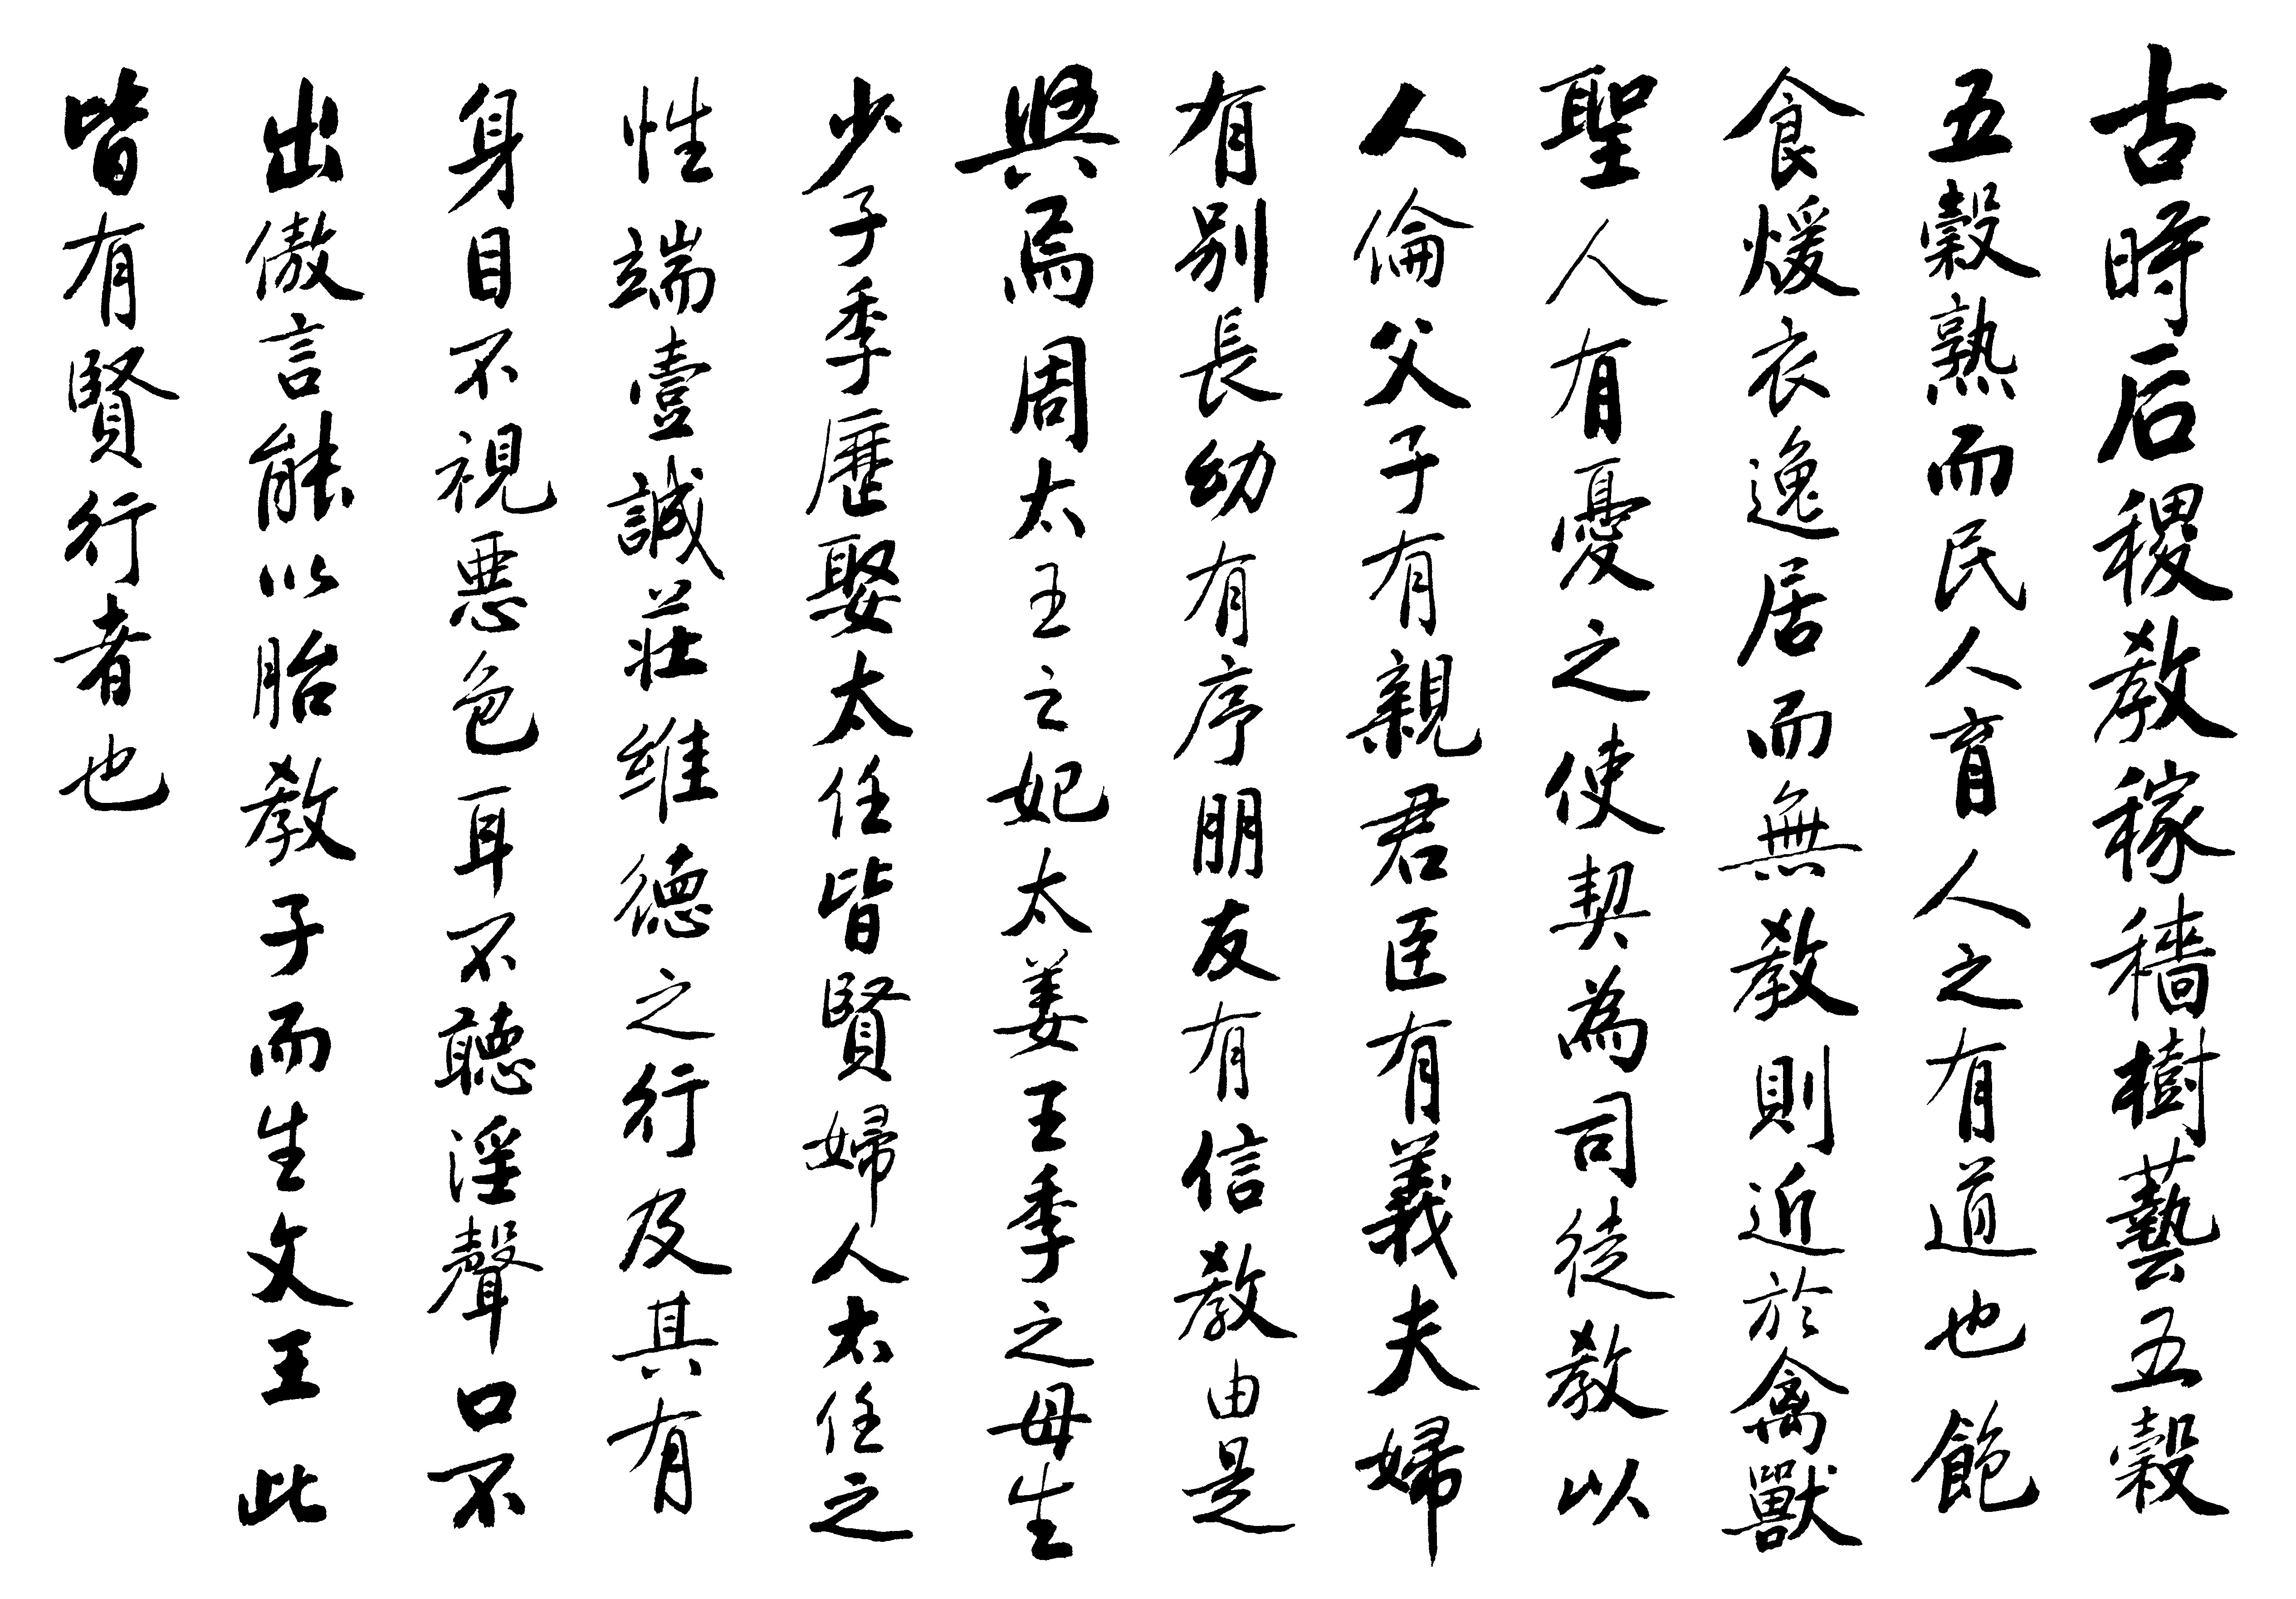 古時后稷教稼穡樹藝五穀
五穀熟而民人育人之有道也飽
食煖衣逸居而無教則近於禽獸
聖人有憂之使契為司徒教以
人倫父子有親君臣有義夫婦
有別長幼有序朋友有信教由是
興焉周太王之妃太姜王季之母生
少子季歷娶太任皆賢婦人太任之
性端壹誠莊維德之行及其有
身目不視惡色耳不聽淫聲口不
出傲言能以胎教子而生文王此
皆有賢行者也